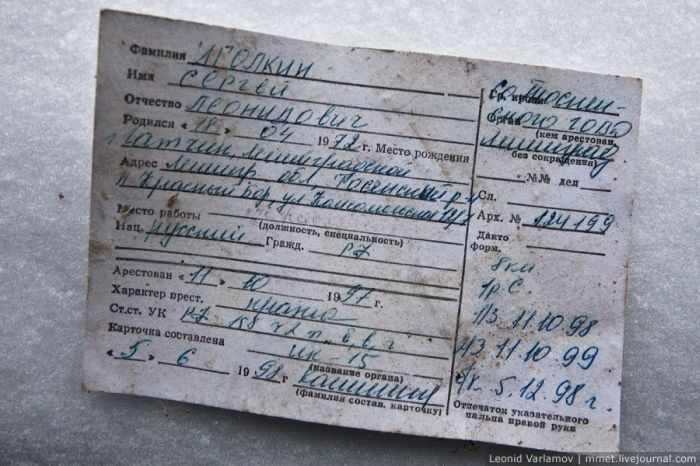 Фамилия Иголкин
Имя Сергей
Отчество Леонидович
Родился «18» 04 1972 г. Место рождения
г Гатчин, Ленинградской
Адрес Ленингр. обл Тосненский р-н
п. Красный Бор, ул Комсомольская
Место работы
(должность, специальность)
Нац. русский Гражд. РФ
Арестован «11» 10 1997 г.
Характер прест. кража
Ст.ст. УК РФ 158 ч2 п „б, в, г"
Карточка составлена ИК-15
(название органа)
«5» 6 1998 г
(фамилия состав. карточку)
Гр. крови
Со Тоснен-
ского гов
Орган
(кем арестован,
Ленинград
без сокращения)
№№ дел
Сл.
Арх. № 124199
Дакто
форм.
1/3 11.10.98
2/3 11.10.99
5.12.98 г.
Отпечаток указательного
пальца правой руки
Leonid Varlamov | mmet.livejournal.com